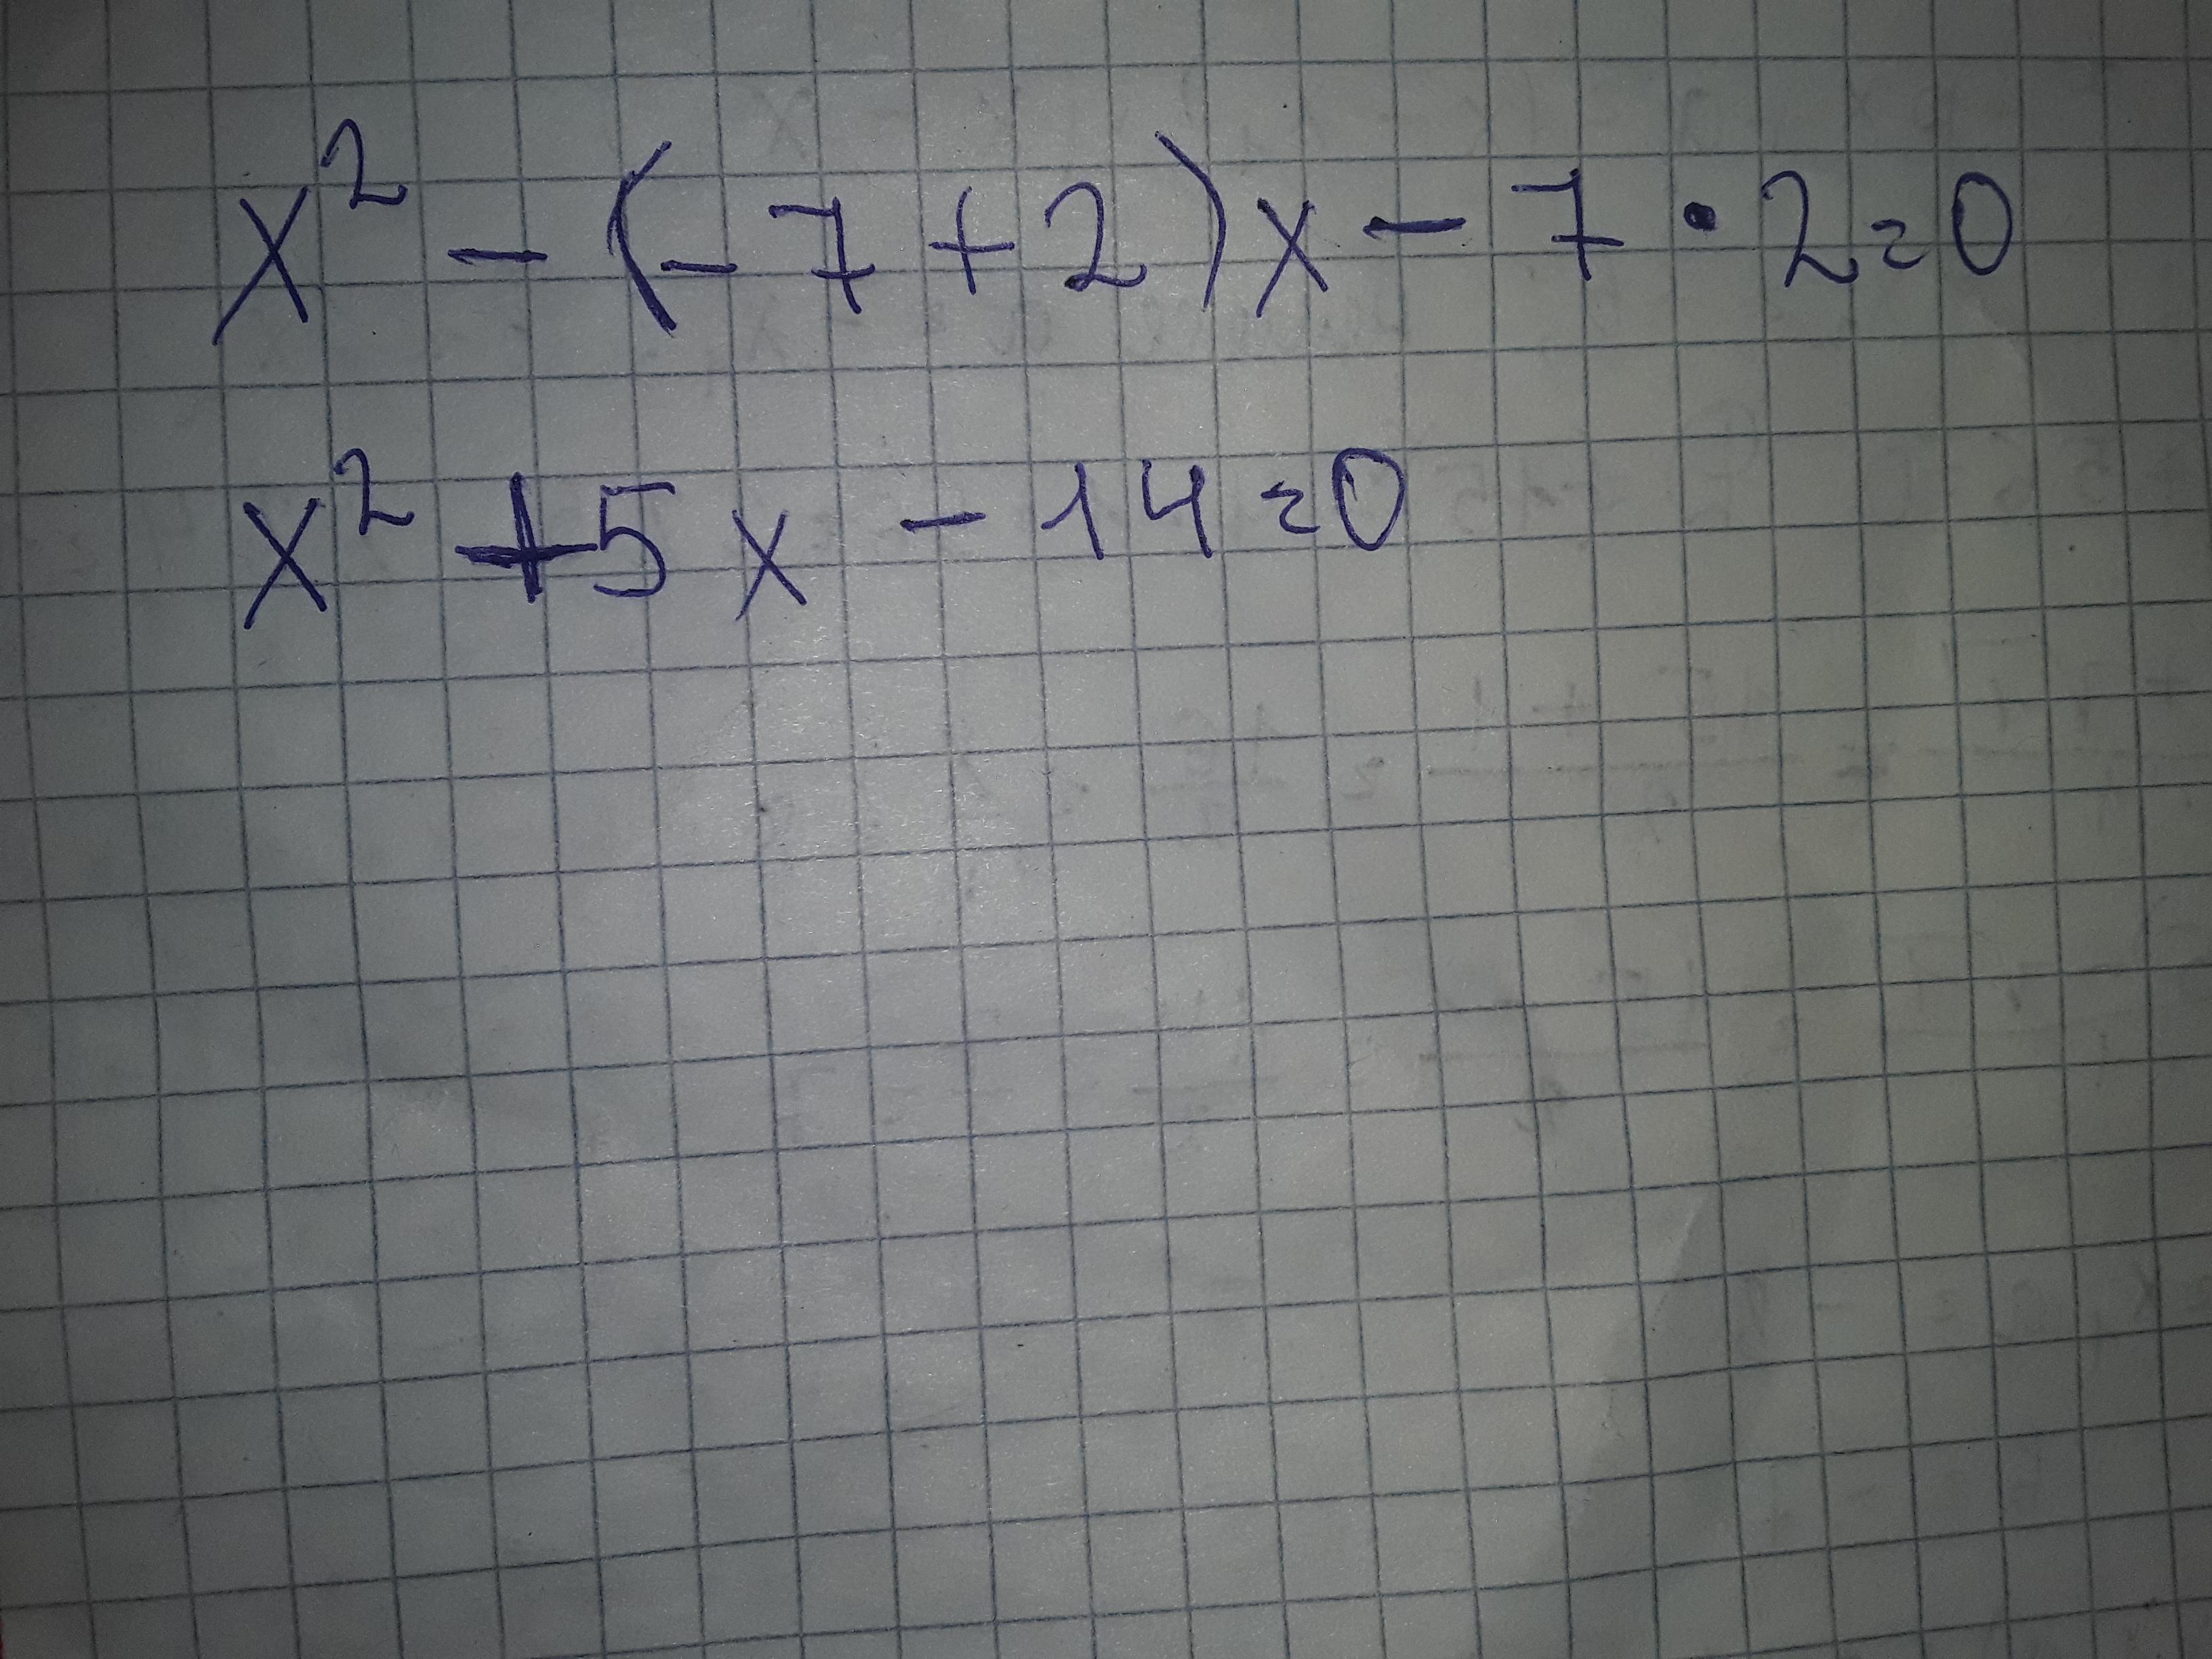 x² - (-7+2)x - 7 · 2 = 0
x² + 5x - 14 = 0